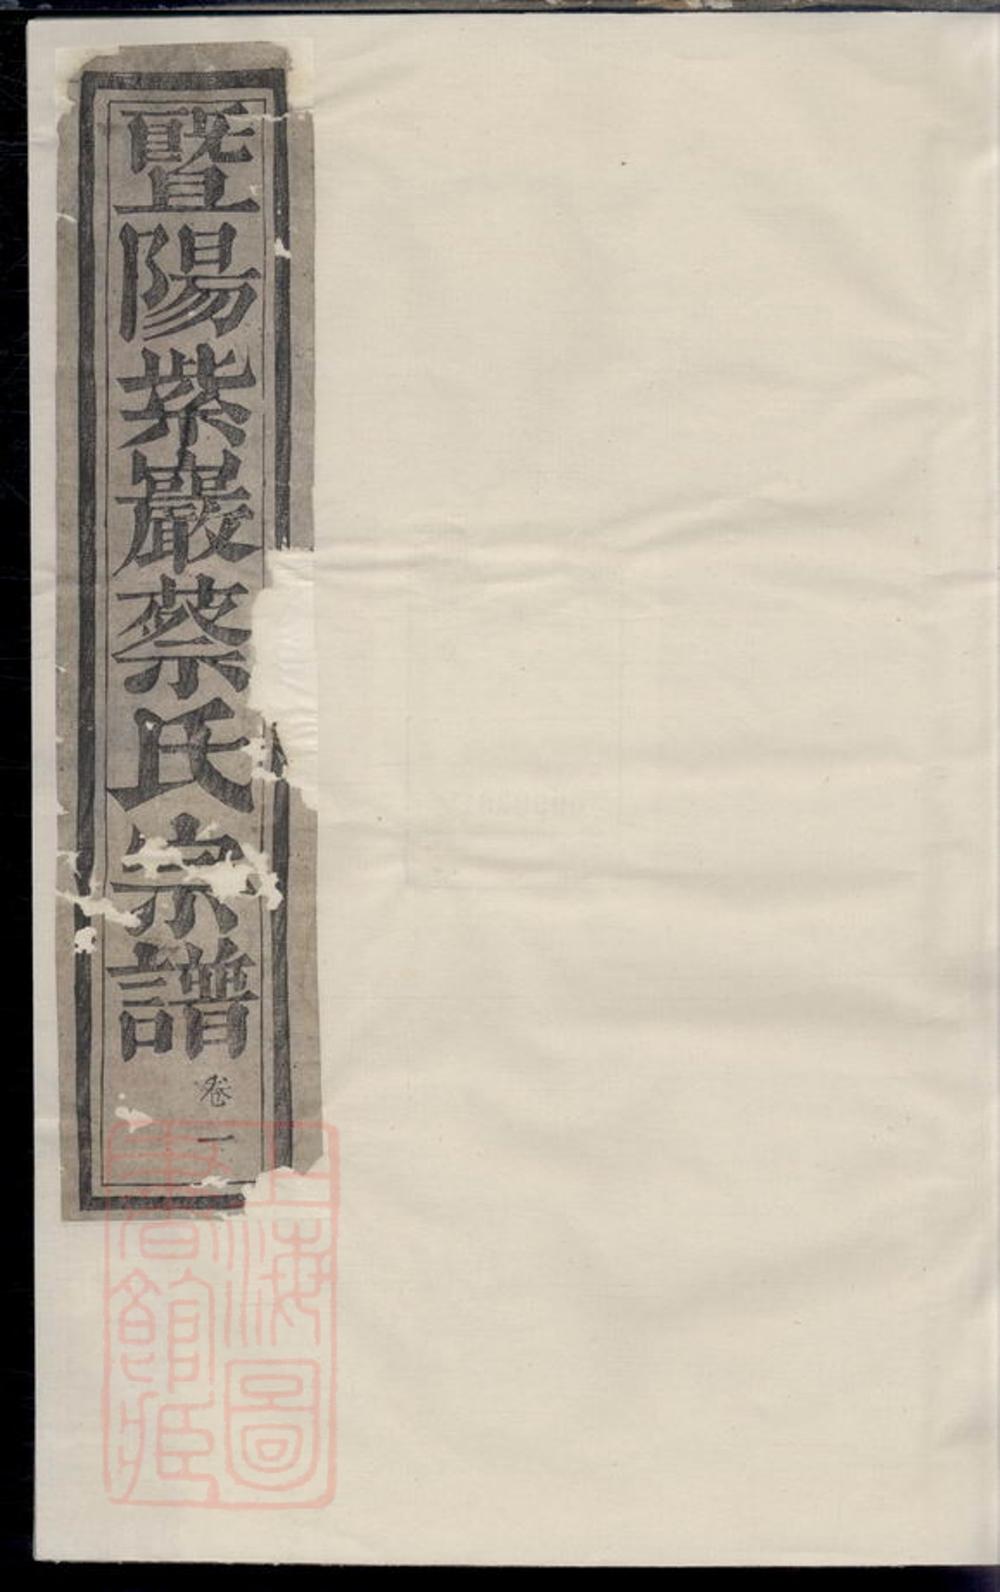 暨陽紫巖蔡氏宗譜
卷一
上海圖
書館藏